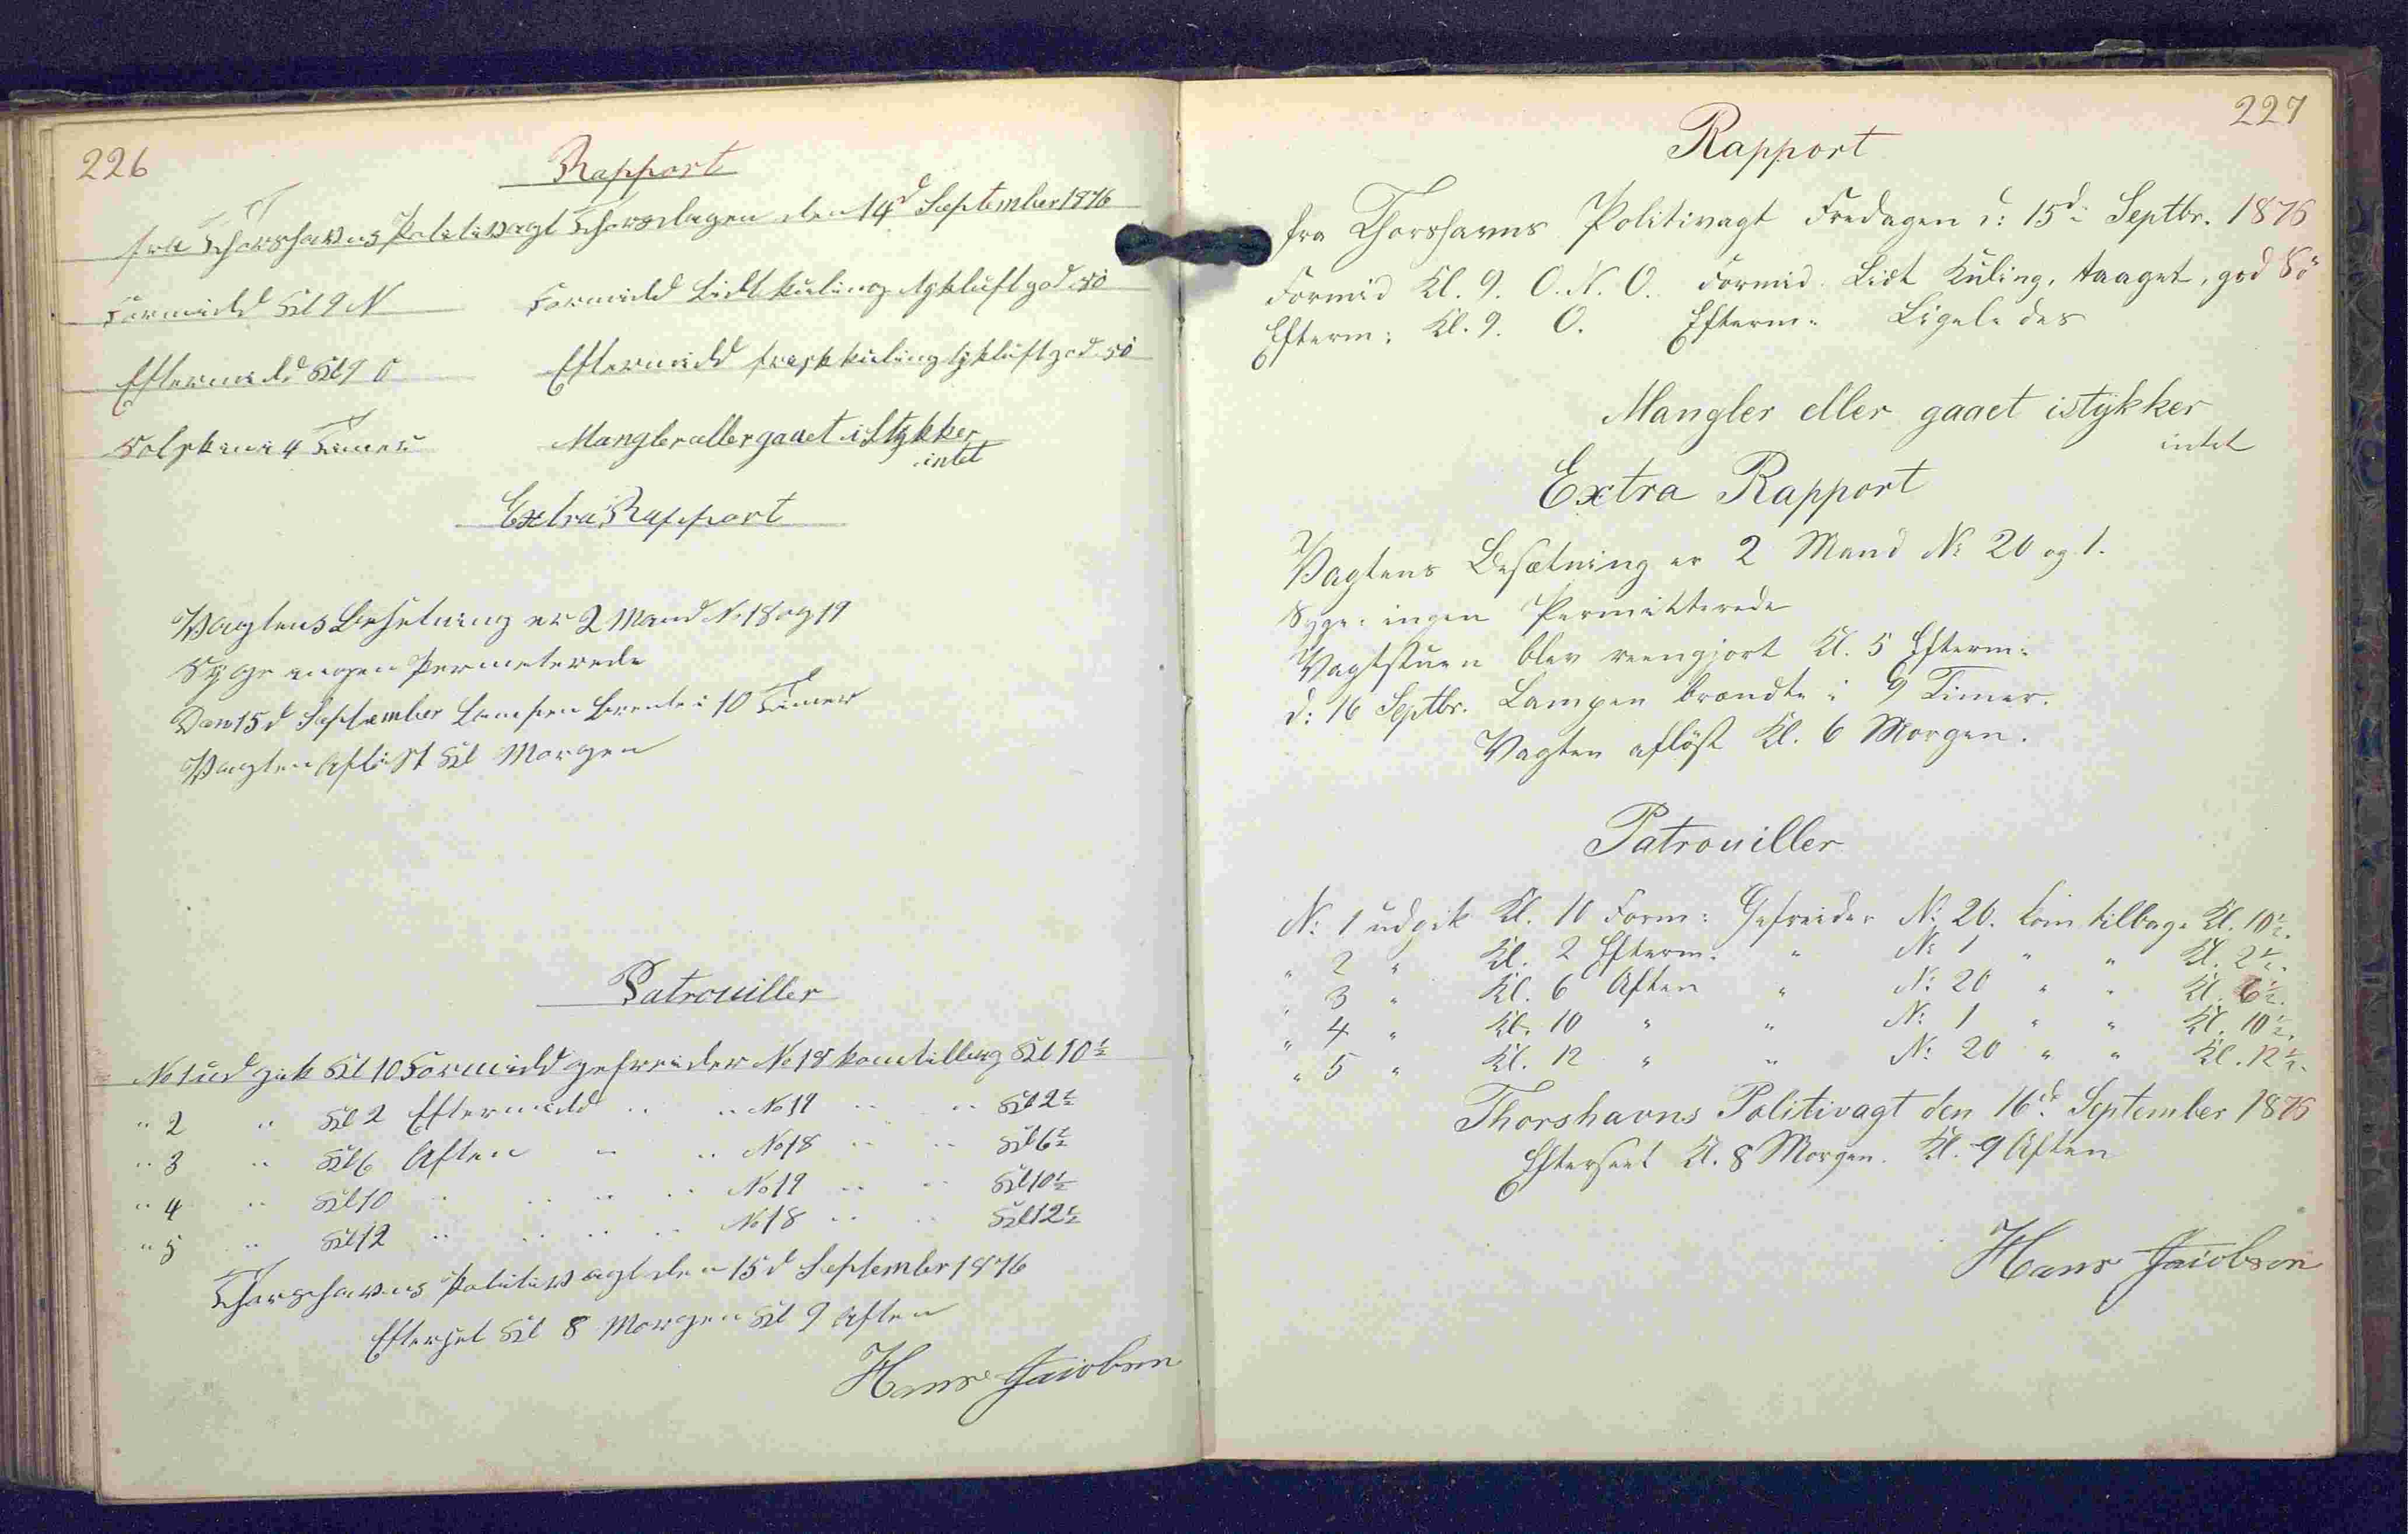 226
Rapport
fra Thorshavns Politivagt Thorsdagen den 14d September 1876
Formidd Kl 9 N Formidd Lidt kuling tykluft god sö
Eftermidd Kl 9 O Eftermidd frisk kuling tykluft god sö
Solskin i 4 Timer Mangler eller gaaet i Stykker
intet
Extra Rapport
Vagtens Besetning er 2 Mand No 18 og 19
Syge ingen Permeterede
Den 15d September Lampen Brente i 10 Timer
Vagten Aflöst Kl Morgen
Patrouiller
No 1 ud gik Kl 10 Formidd gefreider No 18 kom tilbag Kl 10½
" 2 " Kl 2 Eftermidd " " No 19 " " Kl 2½
" 3 " Kl 6 Aften " " No 18 " " Kl 6½
" 4 " Kl 10 " " " " No 19 " " Kl 10½
" 5 " Kl 12 " " " " No 18 " " Kl 12½
Thorshavns Politivagt den 15d September 1876
Efterset Kl 8 Morgen Kl 9 Aften
Hans Jacobsen
227
Rapport
fra Thorshavns Politivagt Fredagen d: 15d: Septbr. 1876
Formid Kl. 9. O.N.O. Formid. Lidt Kuling, taaget, god Sö
Efterm: Kl. 9. O. Efterm: Ligeledes
Mangler eller gaaet istykker
intet
Extra Rapport
Vagtens Besætning er 2 Mand No: 20 og 1.
Syge: ingen Permitterede
Vagtstuen blev reengjort Kl. 5 Efterm:
d: 16 Septbr. Lampen brændte i 9 Timer.
Vagten aflöst Kl. 6 Morgen.
Patrouiller
No: 1 udgik Kl. 10 Form: Gefreider No: 20. kom tilbage Kl. 10½.
" 2 " Kl. 2 Efterm: " No: 1 " " Kl. 2½.
" 3 " Kl. 6 Aften " No: 20 " " Kl. 6½.
" 4 " Kl. 10 " " No: 1 " " Kl. 10½.
" 5 " Kl. 12 " " No: 20 " " Kl. 12½.
Thorshavns Politivagt den 16d. September 1876
Efterseet Kl. 8 Morgen. Kl. 9 Aften
Hans Jacobsen